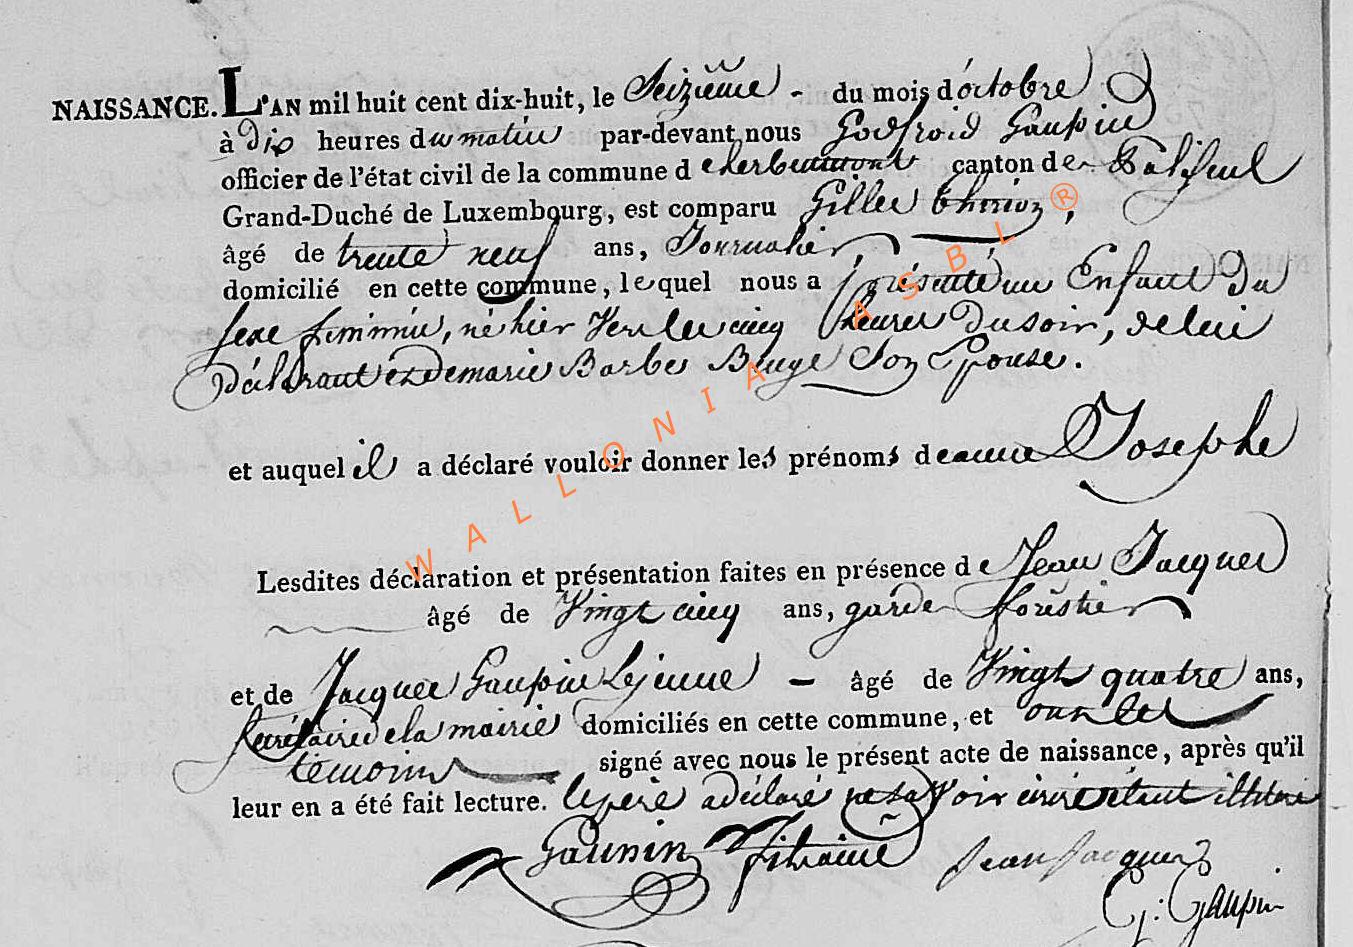 NAISSANCE. L'AN mil huit cent dix-huit, le Seizieme - du mois d'octobre
à Dix heures du matin par-devant nous Godfroid Gaupin
officier de l'état civil de la commune d e herbeumont canton de Paliseul
Grand-Duché de Luxembourg, est comparu Gilles thiriou,
âgé de trente neuf ans, Journalier,
domicilié en cette commune, lequel nous a présenté un Enfant Du
sexe feminin, né hier Vers les cinq heures Du soir, de lui
Déclarant et de marie Barbe Buge Son Epouse.
et auquel il a déclaré vouloir donner les prénoms de anne Josephe
Lesdites déclaration et présentation faites en présence de Jean Jacques
âgé de Vingt cinq ans, garde forestier
et de Jacques Gaupin Lejeune - âgé de Vingt quatre ans,
secrétaire de la mairie domiciliés en cette commune, et ont les
temoins signé avec nous le présent acte de naissance, après qu'il
leur en a été fait lecture. le pere a déclaré ne savoir écrire etant illitéré
Gaupin Jean Jacques
G: Gaupin
WALLONIA ASBL ®